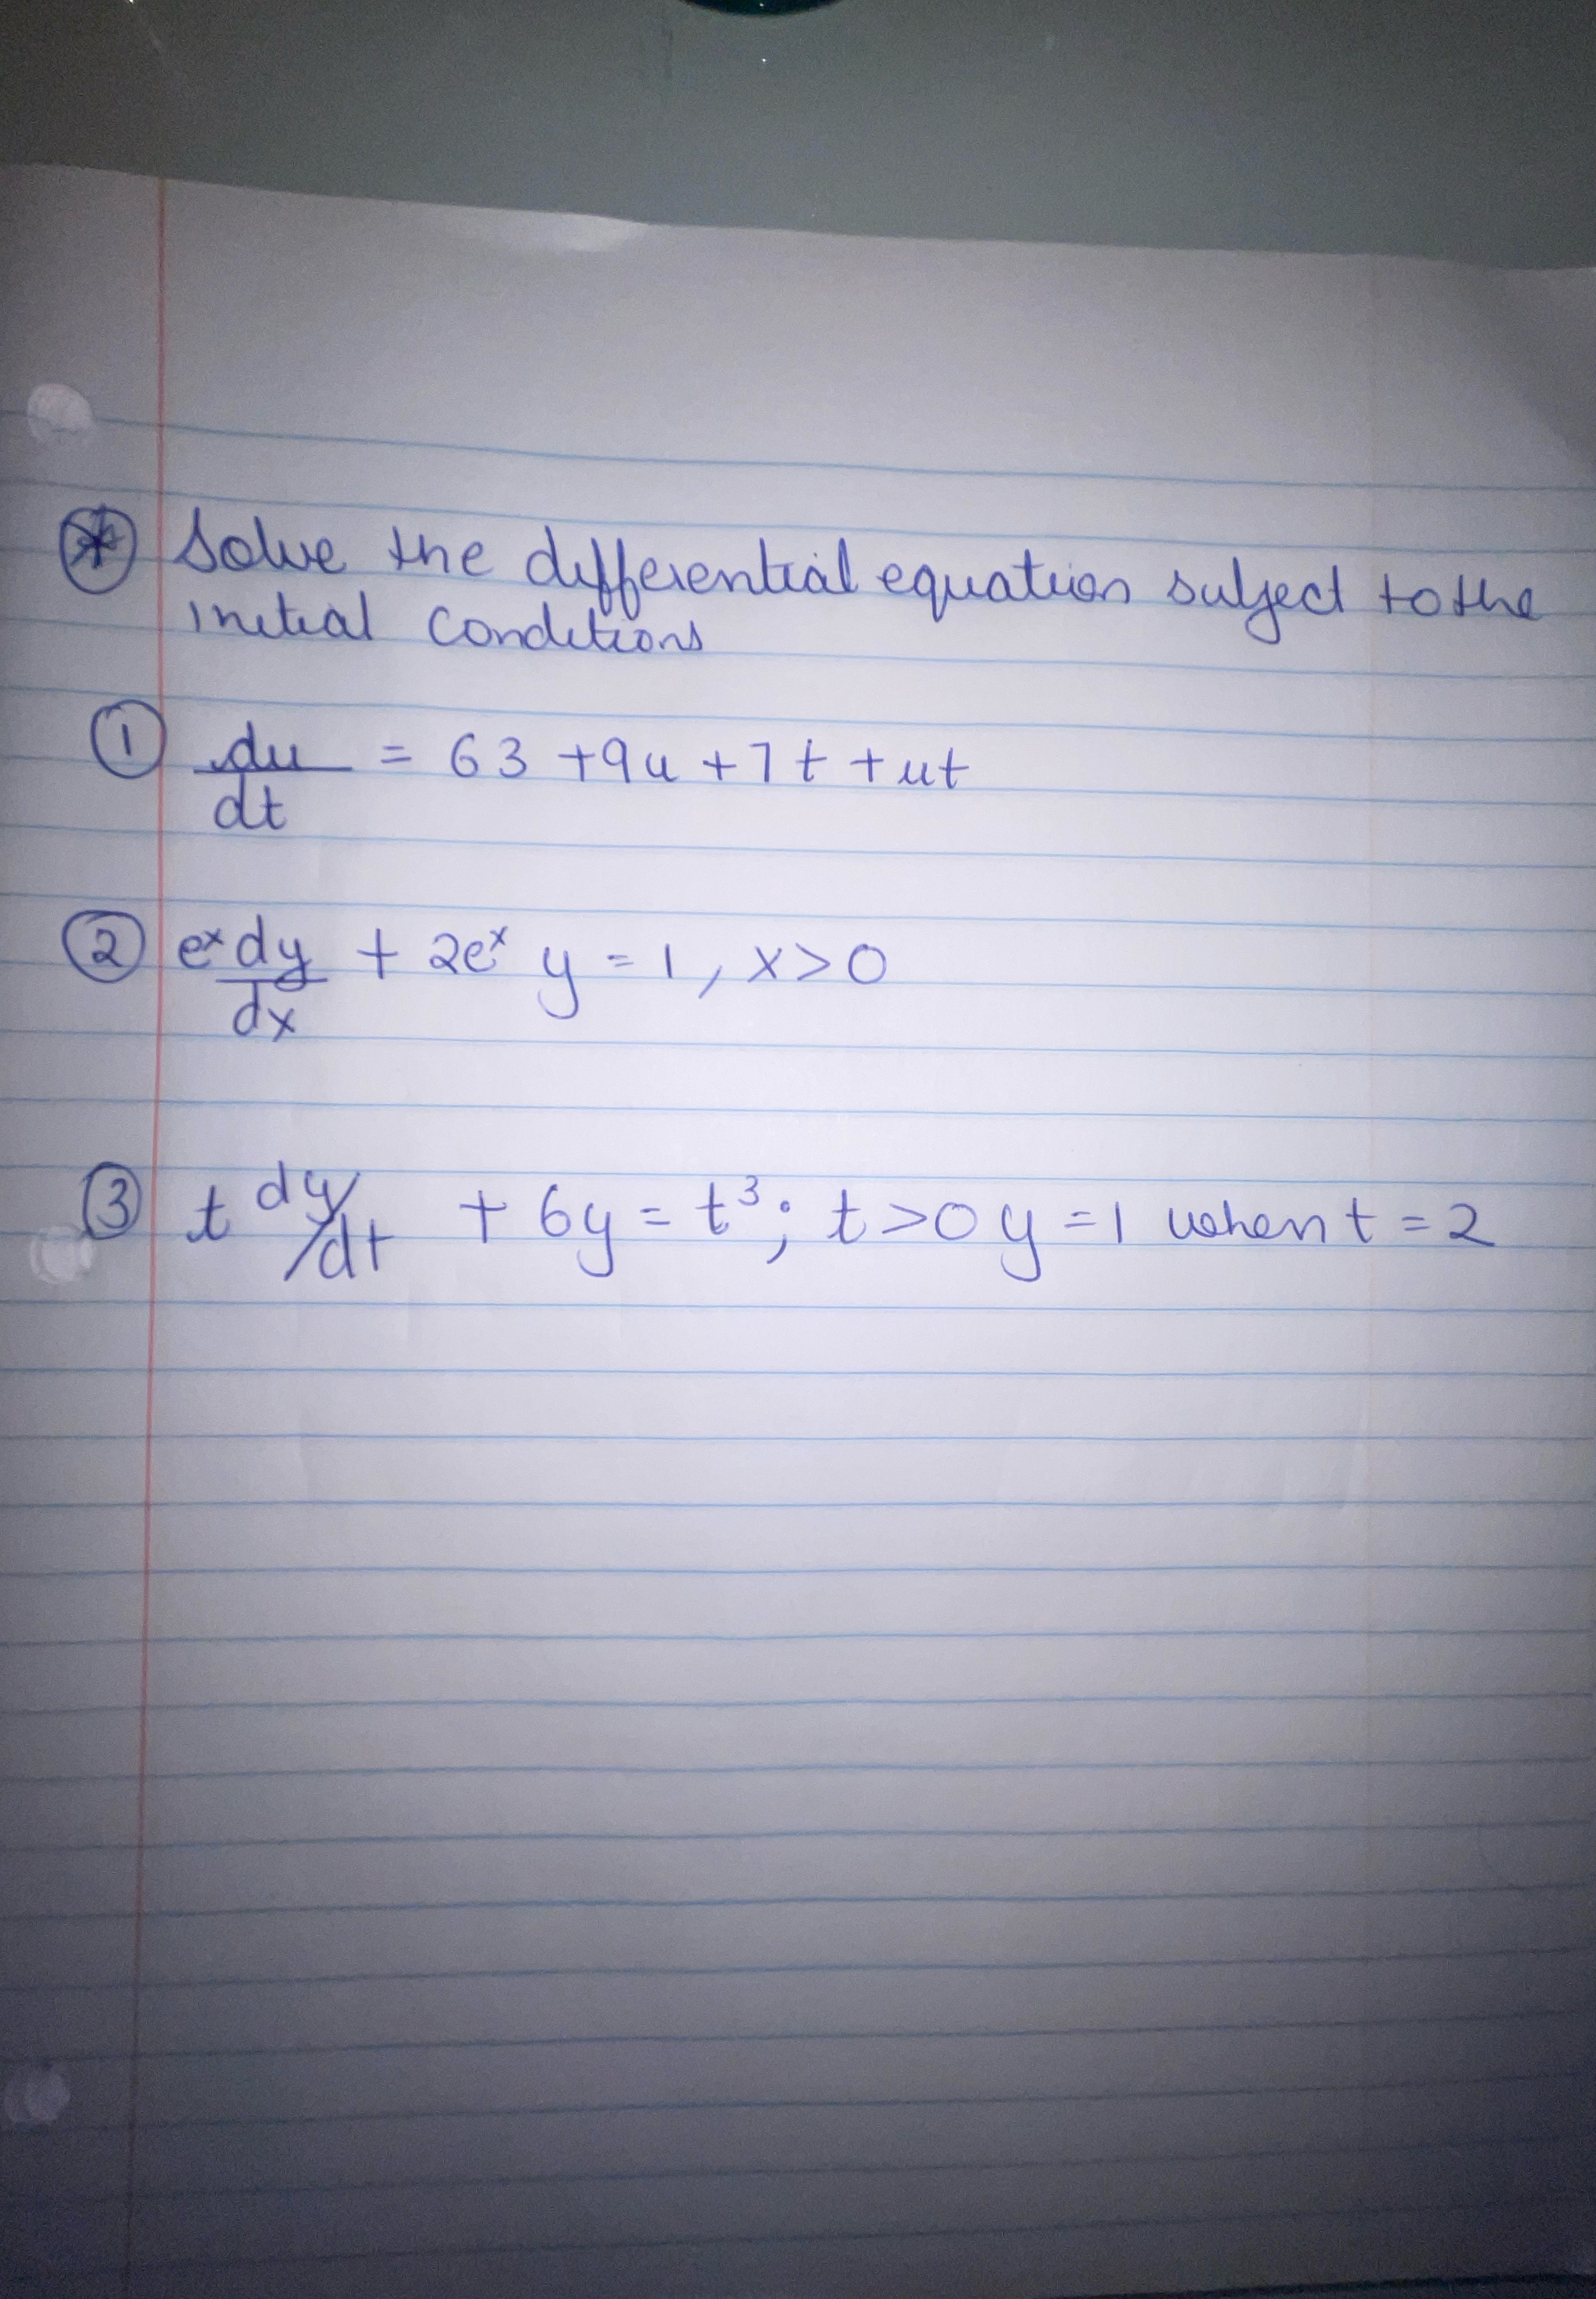 * Solve the differential equation subject to the
initial conditions
① du/dt = 63 + 9u + 7t + ut
② eˣ dy/dx + 2eˣ y = 1, x > 0
③ t dy/dt + 6y = t³; t > 0 y = 1 when t = 2